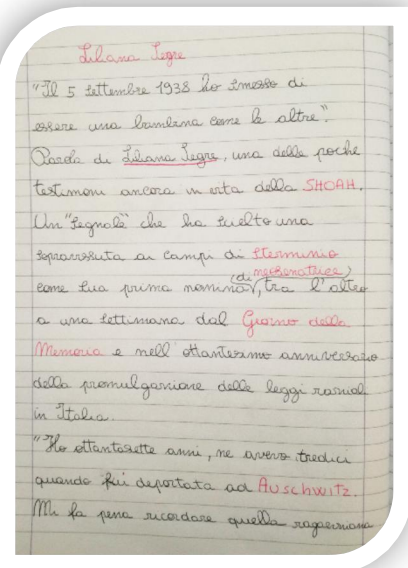 Liliana Segre
"Il 5 settembre 1938 ho smesso di
essere una bambina come le altre".
Parole di Liliana Segre, una delle poche
testimoni ancora in vita della SHOAH.
Un "segnale" che ha scelto una
sopravvissuta ai campi di sterminio
(di neosenatrice)
come sua prima nomina, tra l'altro
a una settimana dal Giorno della
Memoria e nell'ottantesimo anniversario
della promulgazione delle leggi razziali
in Italia.
"Ho ottantasette anni, ne avevo tredici
quando fui deportata ad Auschwitz.
Mi fa pena ricordare quella ragazzina